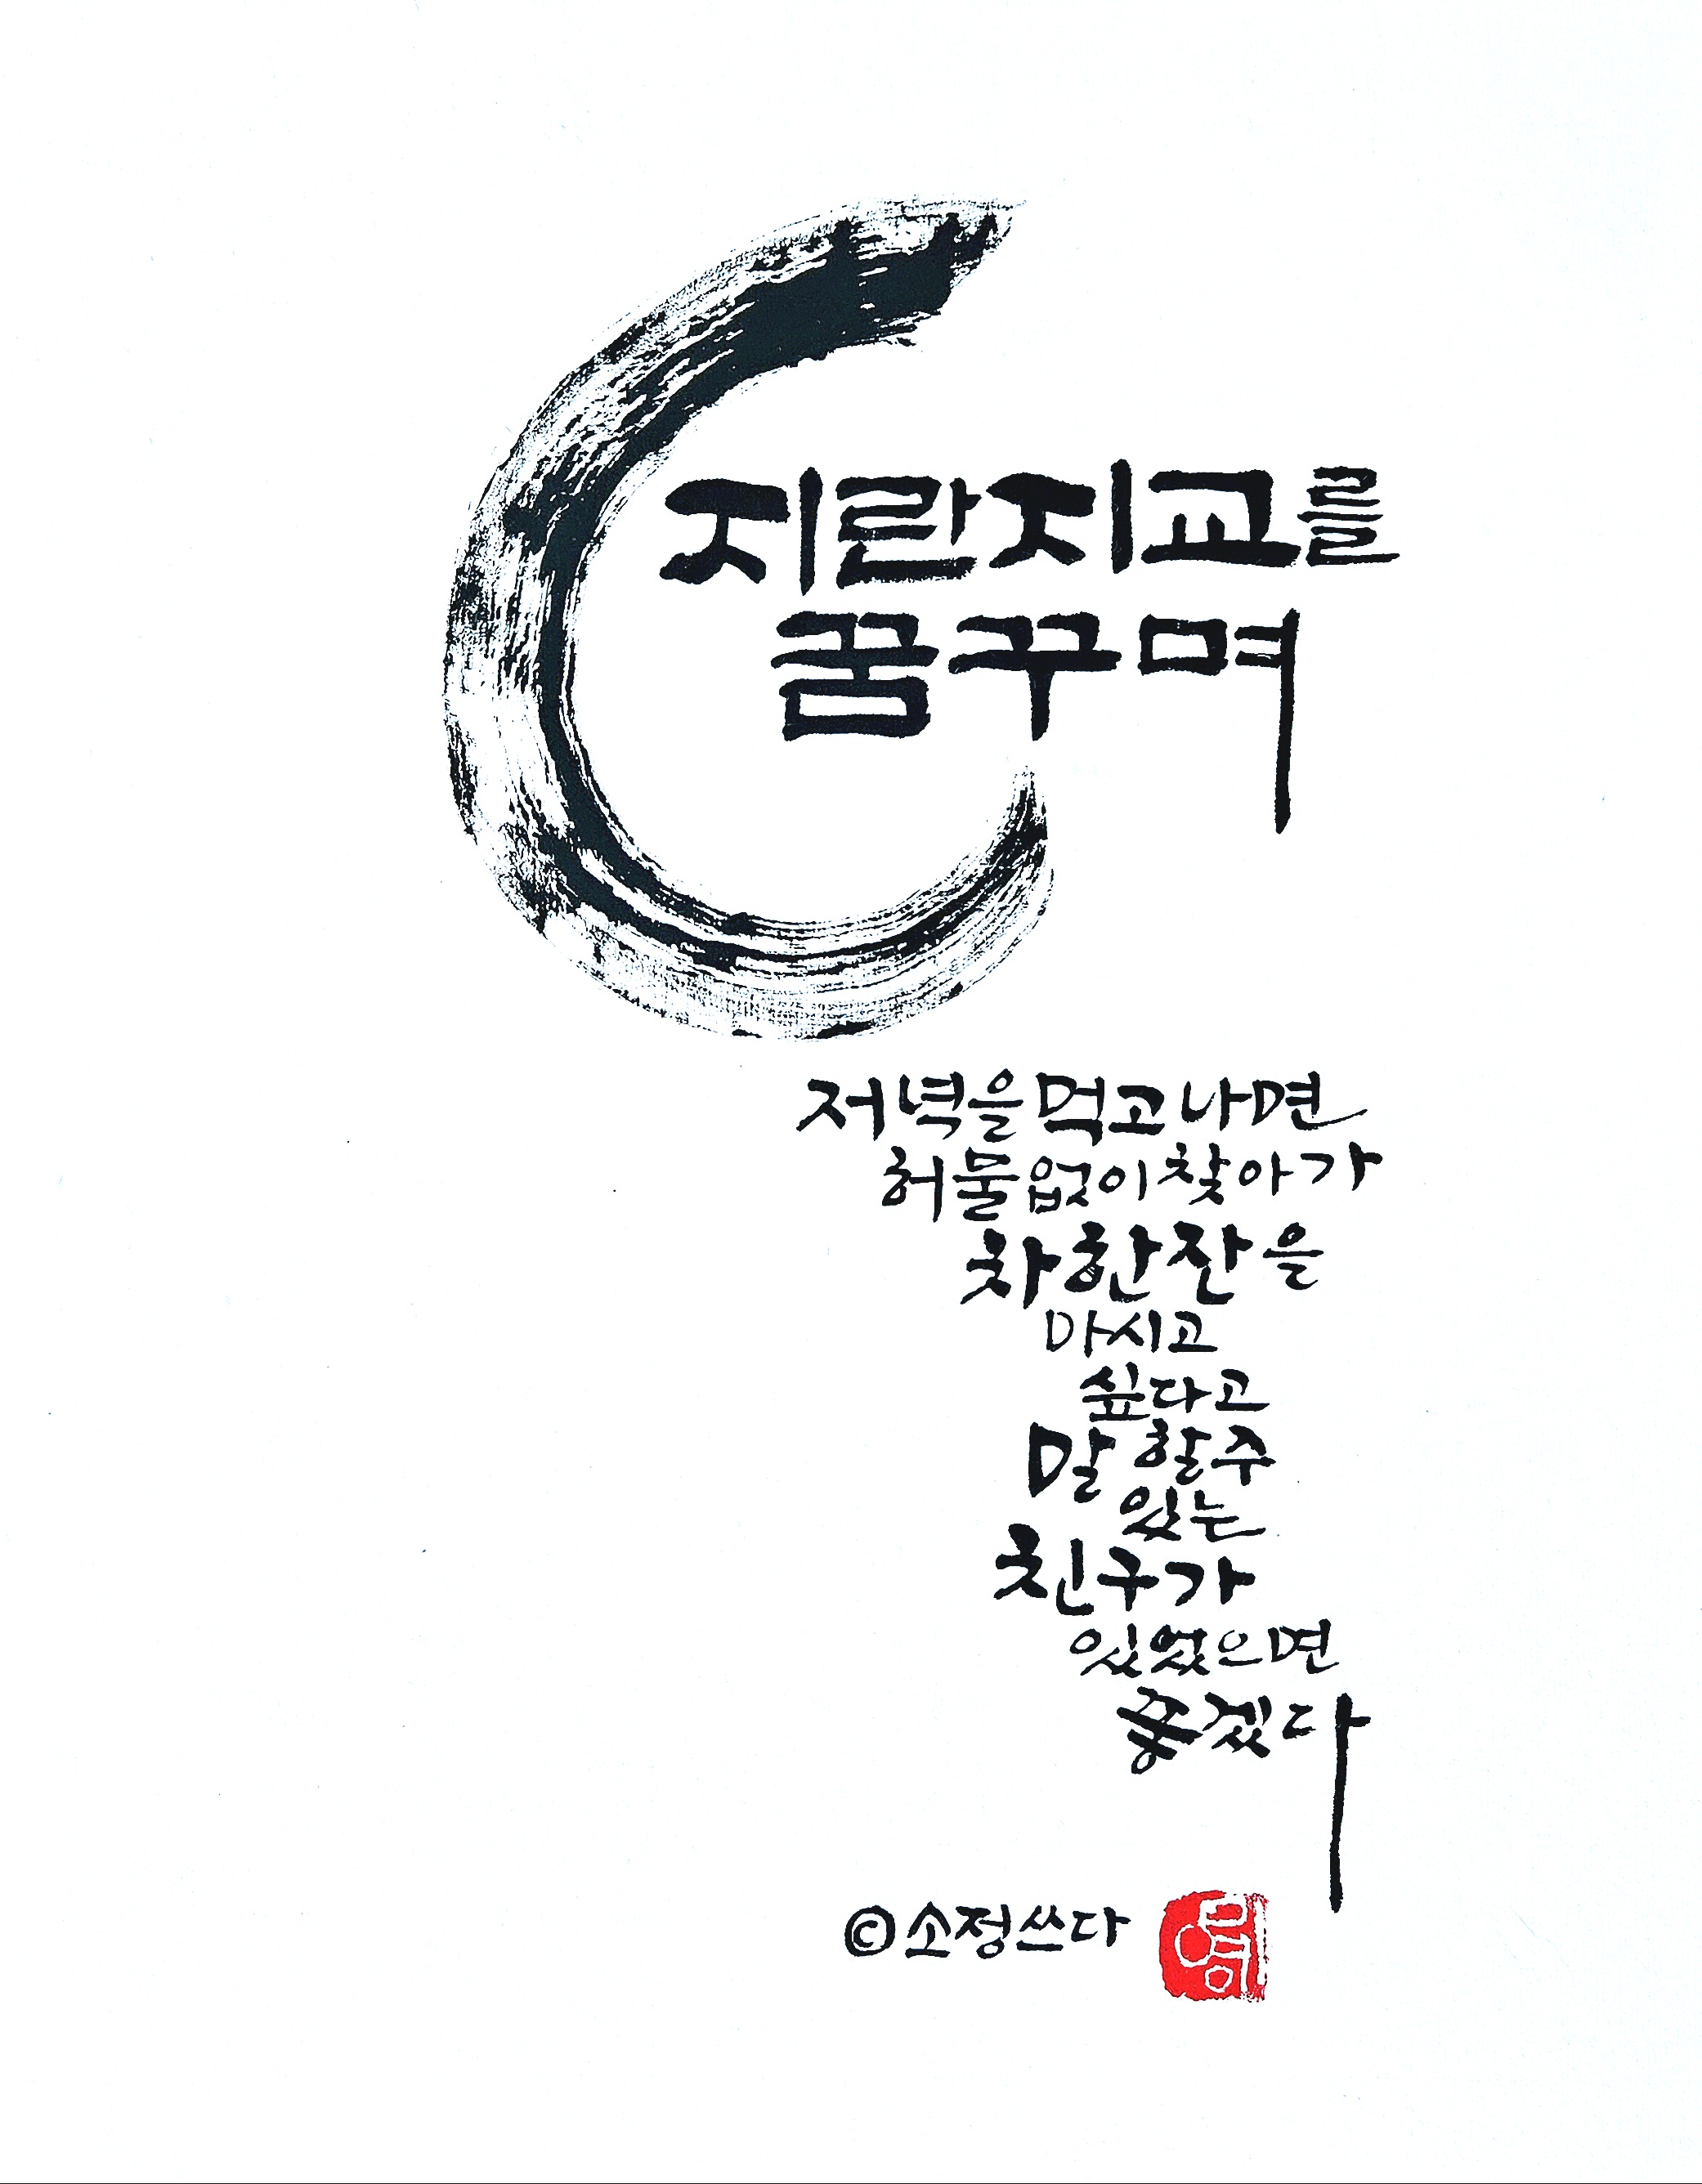 지란지교를
꿈꾸며
저녁을 먹고 나면
허물없이 찾아가
차 한잔을
마시고
싶다고
말 할 수
있는
친구가
있었으면
좋겠다
© 소정쓰다